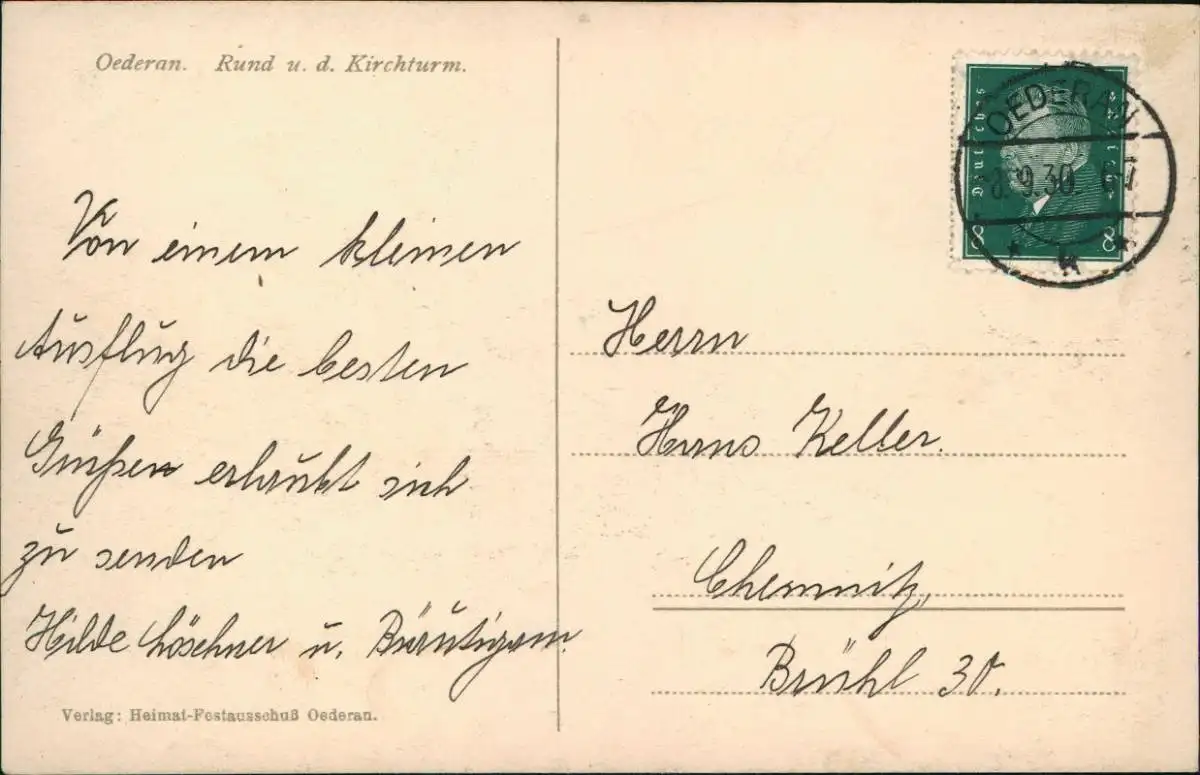 Oederan. Rund u. d. Kirchturm.
Von einem kleinen
Ausflug die besten
Grüßen erlaubt sich
zu senden
Hilde Löschner u. Bräutigam.
Verlag: Heimat-Festausschuß Oederan.
Deutsches Reich
8 8
OEDERAN
8.9.30
Herrn
Hans Keller.
Chemnitz,
Brühl 30.